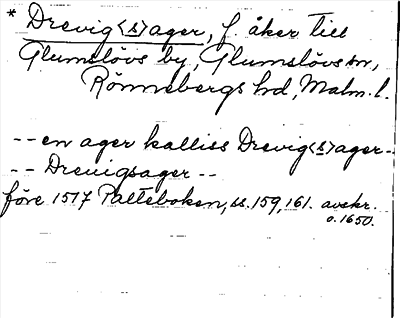 * Drevig<s>ager, f. åker till
Glumslövs by, Glumslövs sn,
Rönnebergs hd, Malm. l.
-- en ager kalliss Drevig<s>ager --
-- Drevigsager --
före 1517 Palteboken, ss. 159, 161. avskr.
o. 1650.